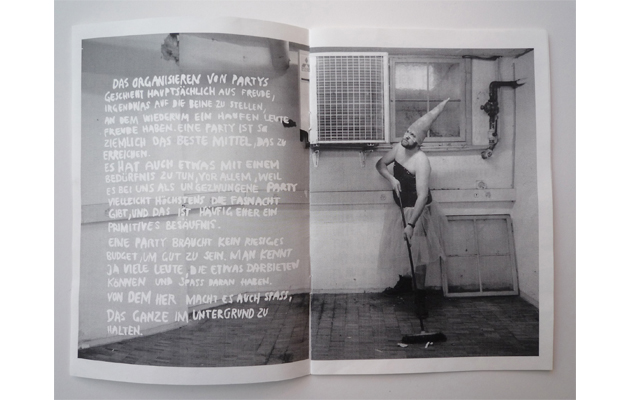 DAS ORGANISIEREN VON PARTYS
GESCHIEHT HAUPTSÄCHLICH AUS FREUDE,
IRGENDWAS AUF DIE BEINE ZU STELLEN,
AN DEM WIEDERUM EIN HAUFEN LEUTE
FREUDE HABEN. EINE PARTY IST SO
ZIEMLICH DAS BESTE MITTEL, DAS ZU
ERREICHEN.
ES HAT AUCH ETWAS MIT EINEM
BEDÜRFNIS ZU TUN, VOR ALLEM, WEIL
ES BEI UNS ALS UNGEZWUNGENE PARTY
VIELLEICHT HÖCHSTENS DIE FASNACHT
GIBT, UND DAS IST HÄUFIG EHER EIN
PRIMITIVES BESÄUFNIS.
EINE PARTY BRAUCHT KEIN RIESIGES
BUDGET, UM GUT ZU SEIN. MAN KENNT
JA VIELE LEUTE, DIE ETWAS DARBIETEN
KÖNNEN UND SPASS DARAN HABEN.
VON DEM HER MACHT ES AUCH SPASS,
DAS GANZE IM UNTERGRUND ZU
HALTEN.